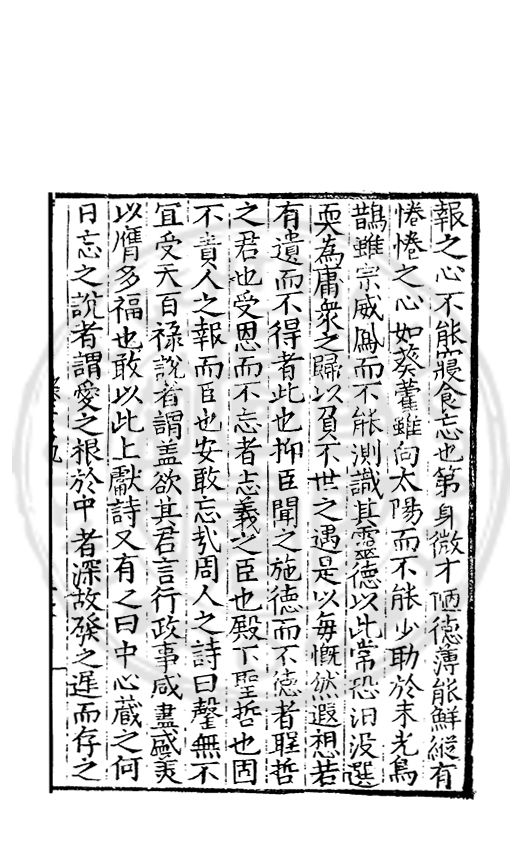 報之心不能寢食忘也第身微才陋德薄能鮮縱有
惓惓之心如葵藿雖向太陽而不能少助於末光烏
鵲雖宗威鳳而不能測識其靈德以此常恐汨沒選
耎為庸衆之歸以負不世之遇是以每慨然遐想若
有遺而不得者此也抑臣聞之施德而不德者聖哲
之君也受恩而不忘者忠義之臣也殿下聖哲也固
不責人之報而臣也安敢忘㢤周人之詩曰罄無不
宜受天百祿說者謂盖欲其君言行政事咸盡盛羙
以膺多福也敢以此上獻詩又有之曰中心藏之何
日忘之說者謂愛之根於中者深故發之遲而存之